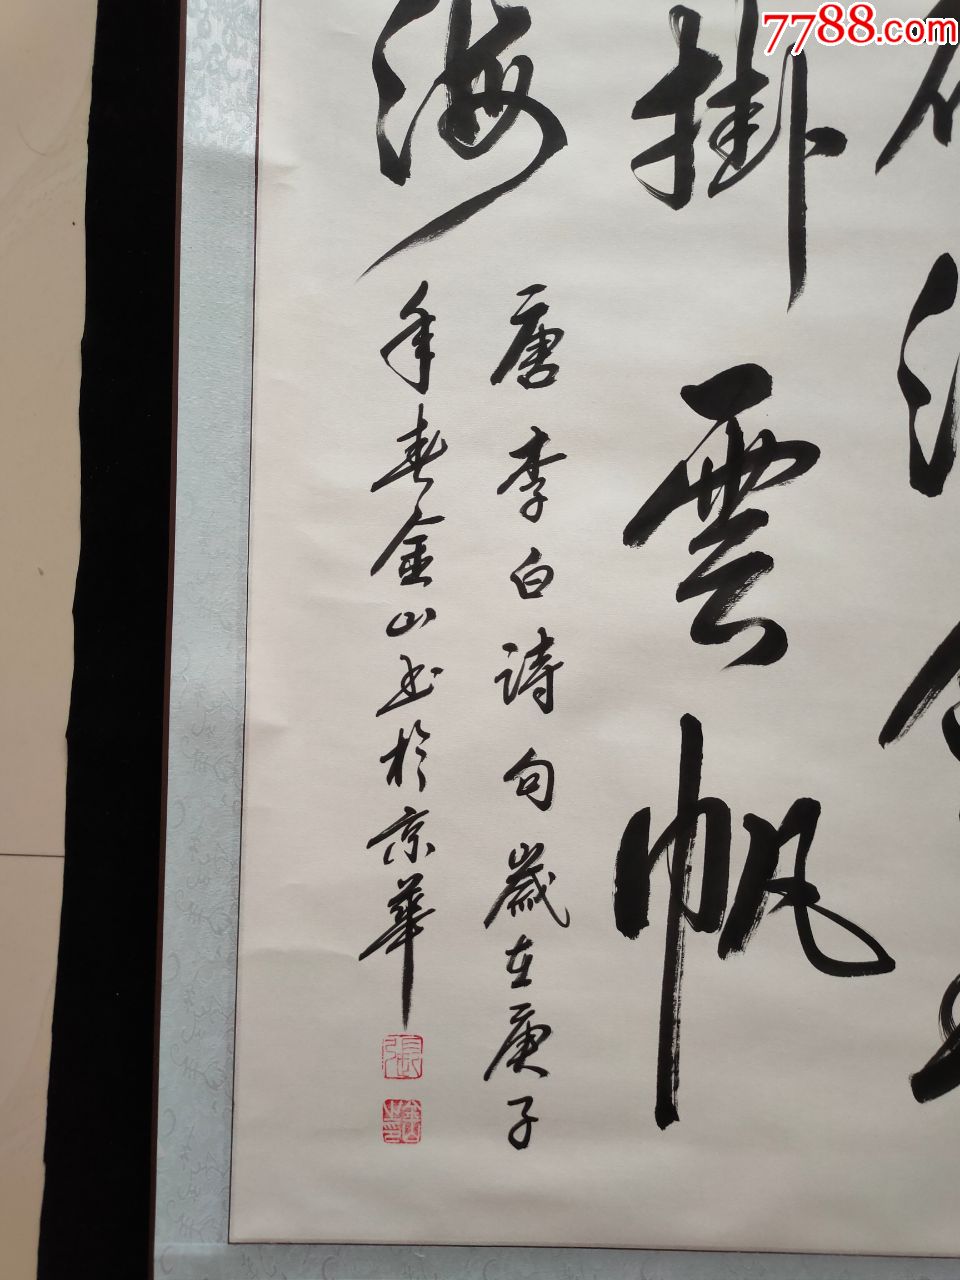 7788.com
掛雲帆
海
唐李白詩句歲在庚子
年春金山书於京華
張